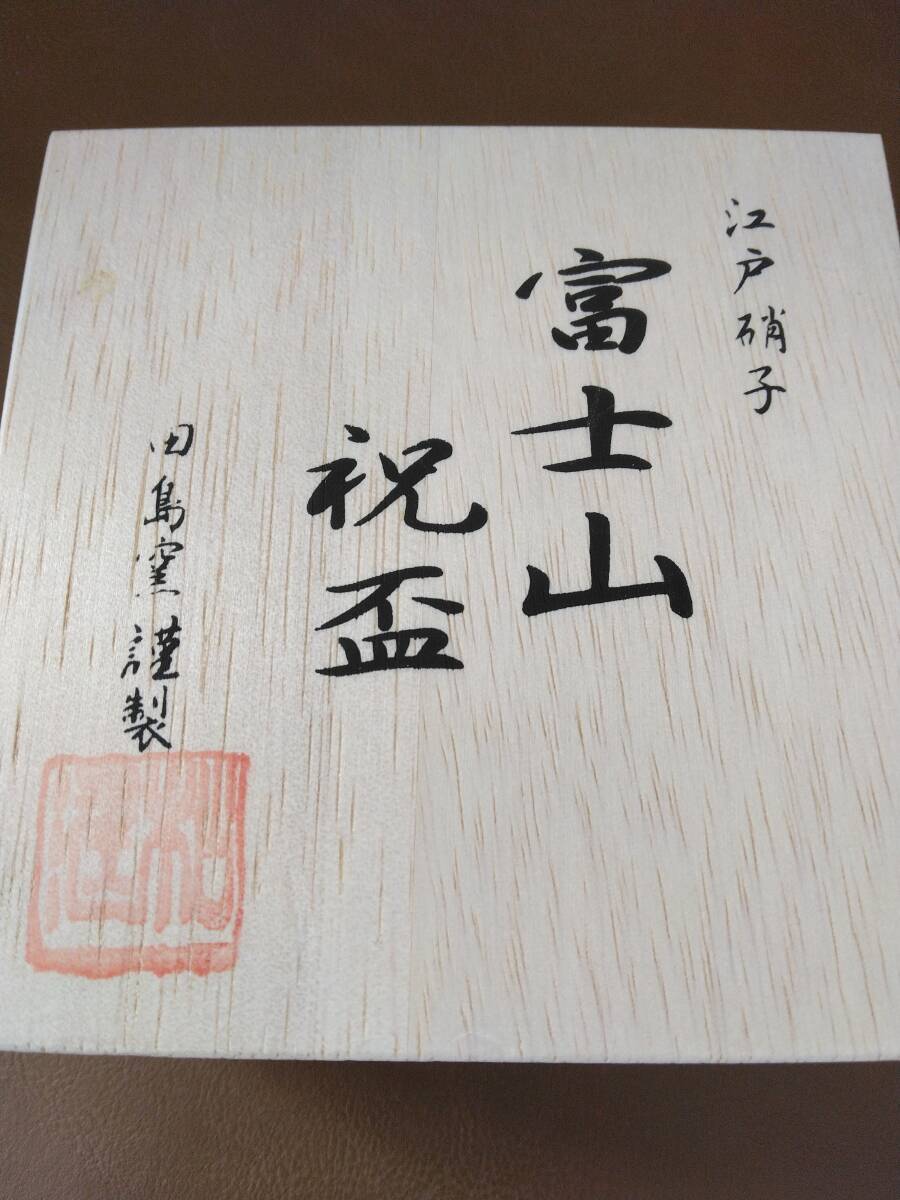 江戸硝子
富士山
祝盃
田島窯謹製